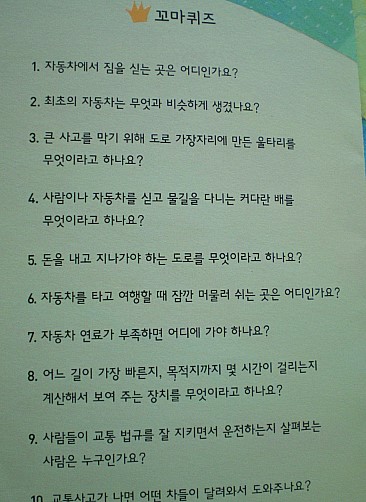 꼬마퀴즈
1. 자동차에서 짐을 싣는 곳은 어디인가요?
2. 최초의 자동차는 무엇과 비슷하게 생겼나요?
3. 큰 사고를 막기 위해 도로 가장자리에 만든 울타리를
무엇이라고 하나요?
4. 사람이나 자동차를 싣고 물길을 다니는 커다란 배를
무엇이라고 하나요?
5. 돈을 내고 지나가야 하는 도로를 무엇이라고 하나요?
6. 자동차를 타고 여행할 때 잠깐 머물러 쉬는 곳은 어디인가요?
7. 자동차 연료가 부족하면 어디에 가야 하나요?
8. 어느 길이 가장 빠른지, 목적지까지 몇 시간이 걸리는지
계산해서 보여 주는 장치를 무엇이라고 하나요?
9. 사람들이 교통 법규를 잘 지키면서 운전하는지 살펴보는
사람은 누구인가요?
10. 교통사고가 나면 어떤 차들이 달려와서 도와주나요?